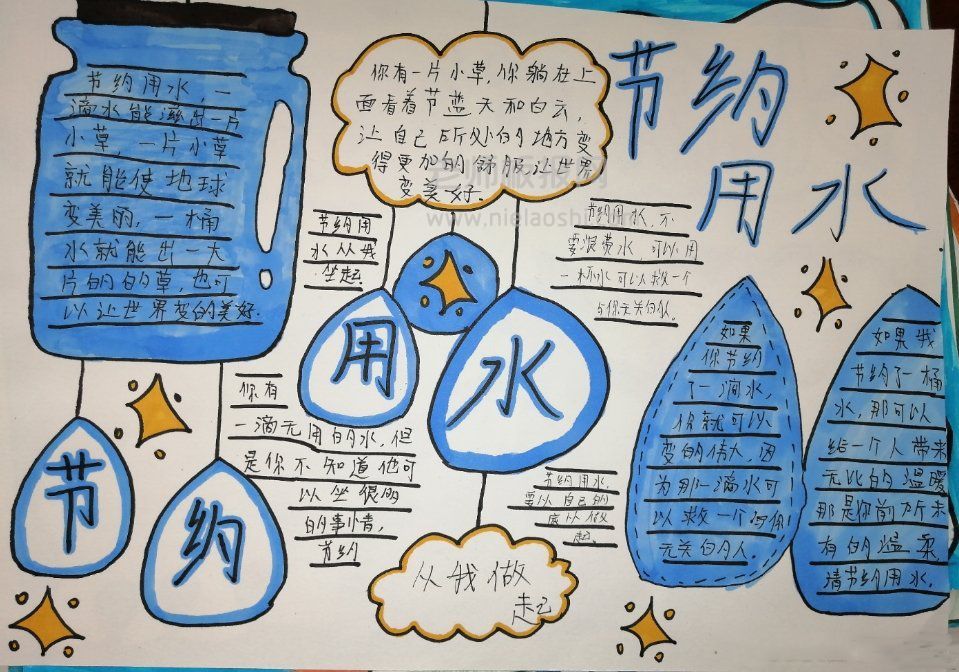 节约用水，一
滴水能滋出一片
小草，一片小草
就能使地球
变美丽，一桶
水就能出一大
片的的草，也可
以让世界变的美好.
你有一片小草，你躺在上
面看着节蓝天和白云，
让自己所处的地方变
得更加的舒服，让世界
变美好.
节约
用水
节约用
水从我
坐起.
节约用水，不
要浪费水，可以用
一杯水可以救一个
与你无关的人.
用
水
节
约
你有
一滴无用的水，但
是你不知道他可
以坐很多
的事情，
节约
节约用水，
要以自己的
做
起.
从我做
起
如果
你节约
了一滴水，
你就可以
变的伟大，因
为那一滴水可
以救一个与你
无关的人.
如果我
节约了一桶
水，那可以
给一个人带来
无比的温暖
那是你前所未
有的温柔
请节约用水.
老师板报网